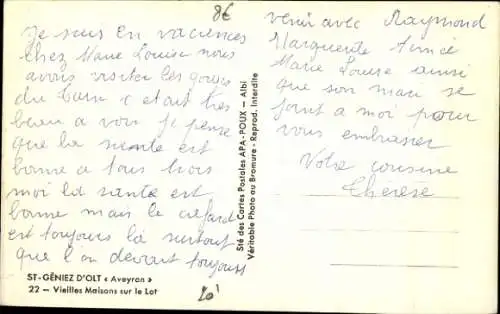 8€
Je suis en vacances
chez Marie Louise nous
avons visiter les gorges
du Tarn c etait très
beau a voir je pense
que la sante est
bonne a tous trois
moi la sante est
bonne mais le cafard
est toujours là surtout
que l'on devait toujours
venir avec Raymond
Marguerite Aimée
Marie Louise ainsi
que son mari se
joint a moi pour
vous embrasser
Votre cousine
Therese
Sté des Cartes Postales APA-POUX — Albi
Véritable Photo au Bromure - Reprod. Interdite
ST-GÉNIEZ D'OLT « Aveyron »
22 — Vieilles Maisons sur le Lot